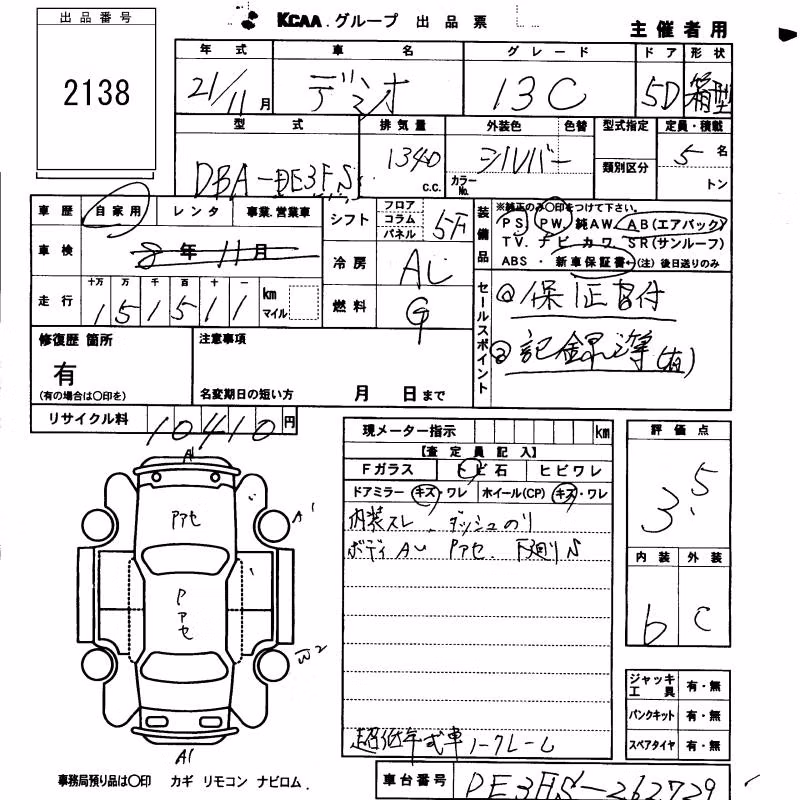 出品番号
2138
KCAA.グループ 出品票
主催者用
年式 車名 グレード ドア 形状
21/11月 デミオ 13C 5D 箱型
型式 排気量 外装色 色替 型式指定 定員・積載
DBA-DE3FS 1340 c.c. シルバー カラーNo. 類別区分 5名 トン
車歴 自家用 レンタ 事業.営業車
シフト フロア コラム パネル 5F
装備品 ※純正のみ〇印をつけて下さい。
PS. PW. 純AW. AB(エアバック)
TV. ナビ・カワ. SR(サンルーフ)
ABS ・ 新車保証書 (注)後日送りのみ
車検 年11月
冷房 AC
走行 十万 万 千 百 十 一
151511 km マイル
燃料 G
セールスポイント
① 保証書付
② 記録簿(有)
修復歴 箇所 注意事項
有
(有の場合は〇印を) 名変期日の短い方 月 日まで
リサイクル料 10410円
現メーター指示 km
【査定員記入】
Fガラス トビ石 ヒビワレ
ドアミラー キズ・ワレ ホイール(CP) キズ・ワレ
内装スレ. ダッシュのり
ボディAU Pアセ. 下廻りS
超低年式車ノークレーム
評価点
3.5
内装 外装
b C
A1
Pアセ
A1
Pアセ
W2
A1
ジャッキ工具 有・無
パンクキット 有・無
スペアタイヤ 有・無
事務局預り品は〇印 カギ リモコン ナビロム.
車台番号 DE3FS-262729